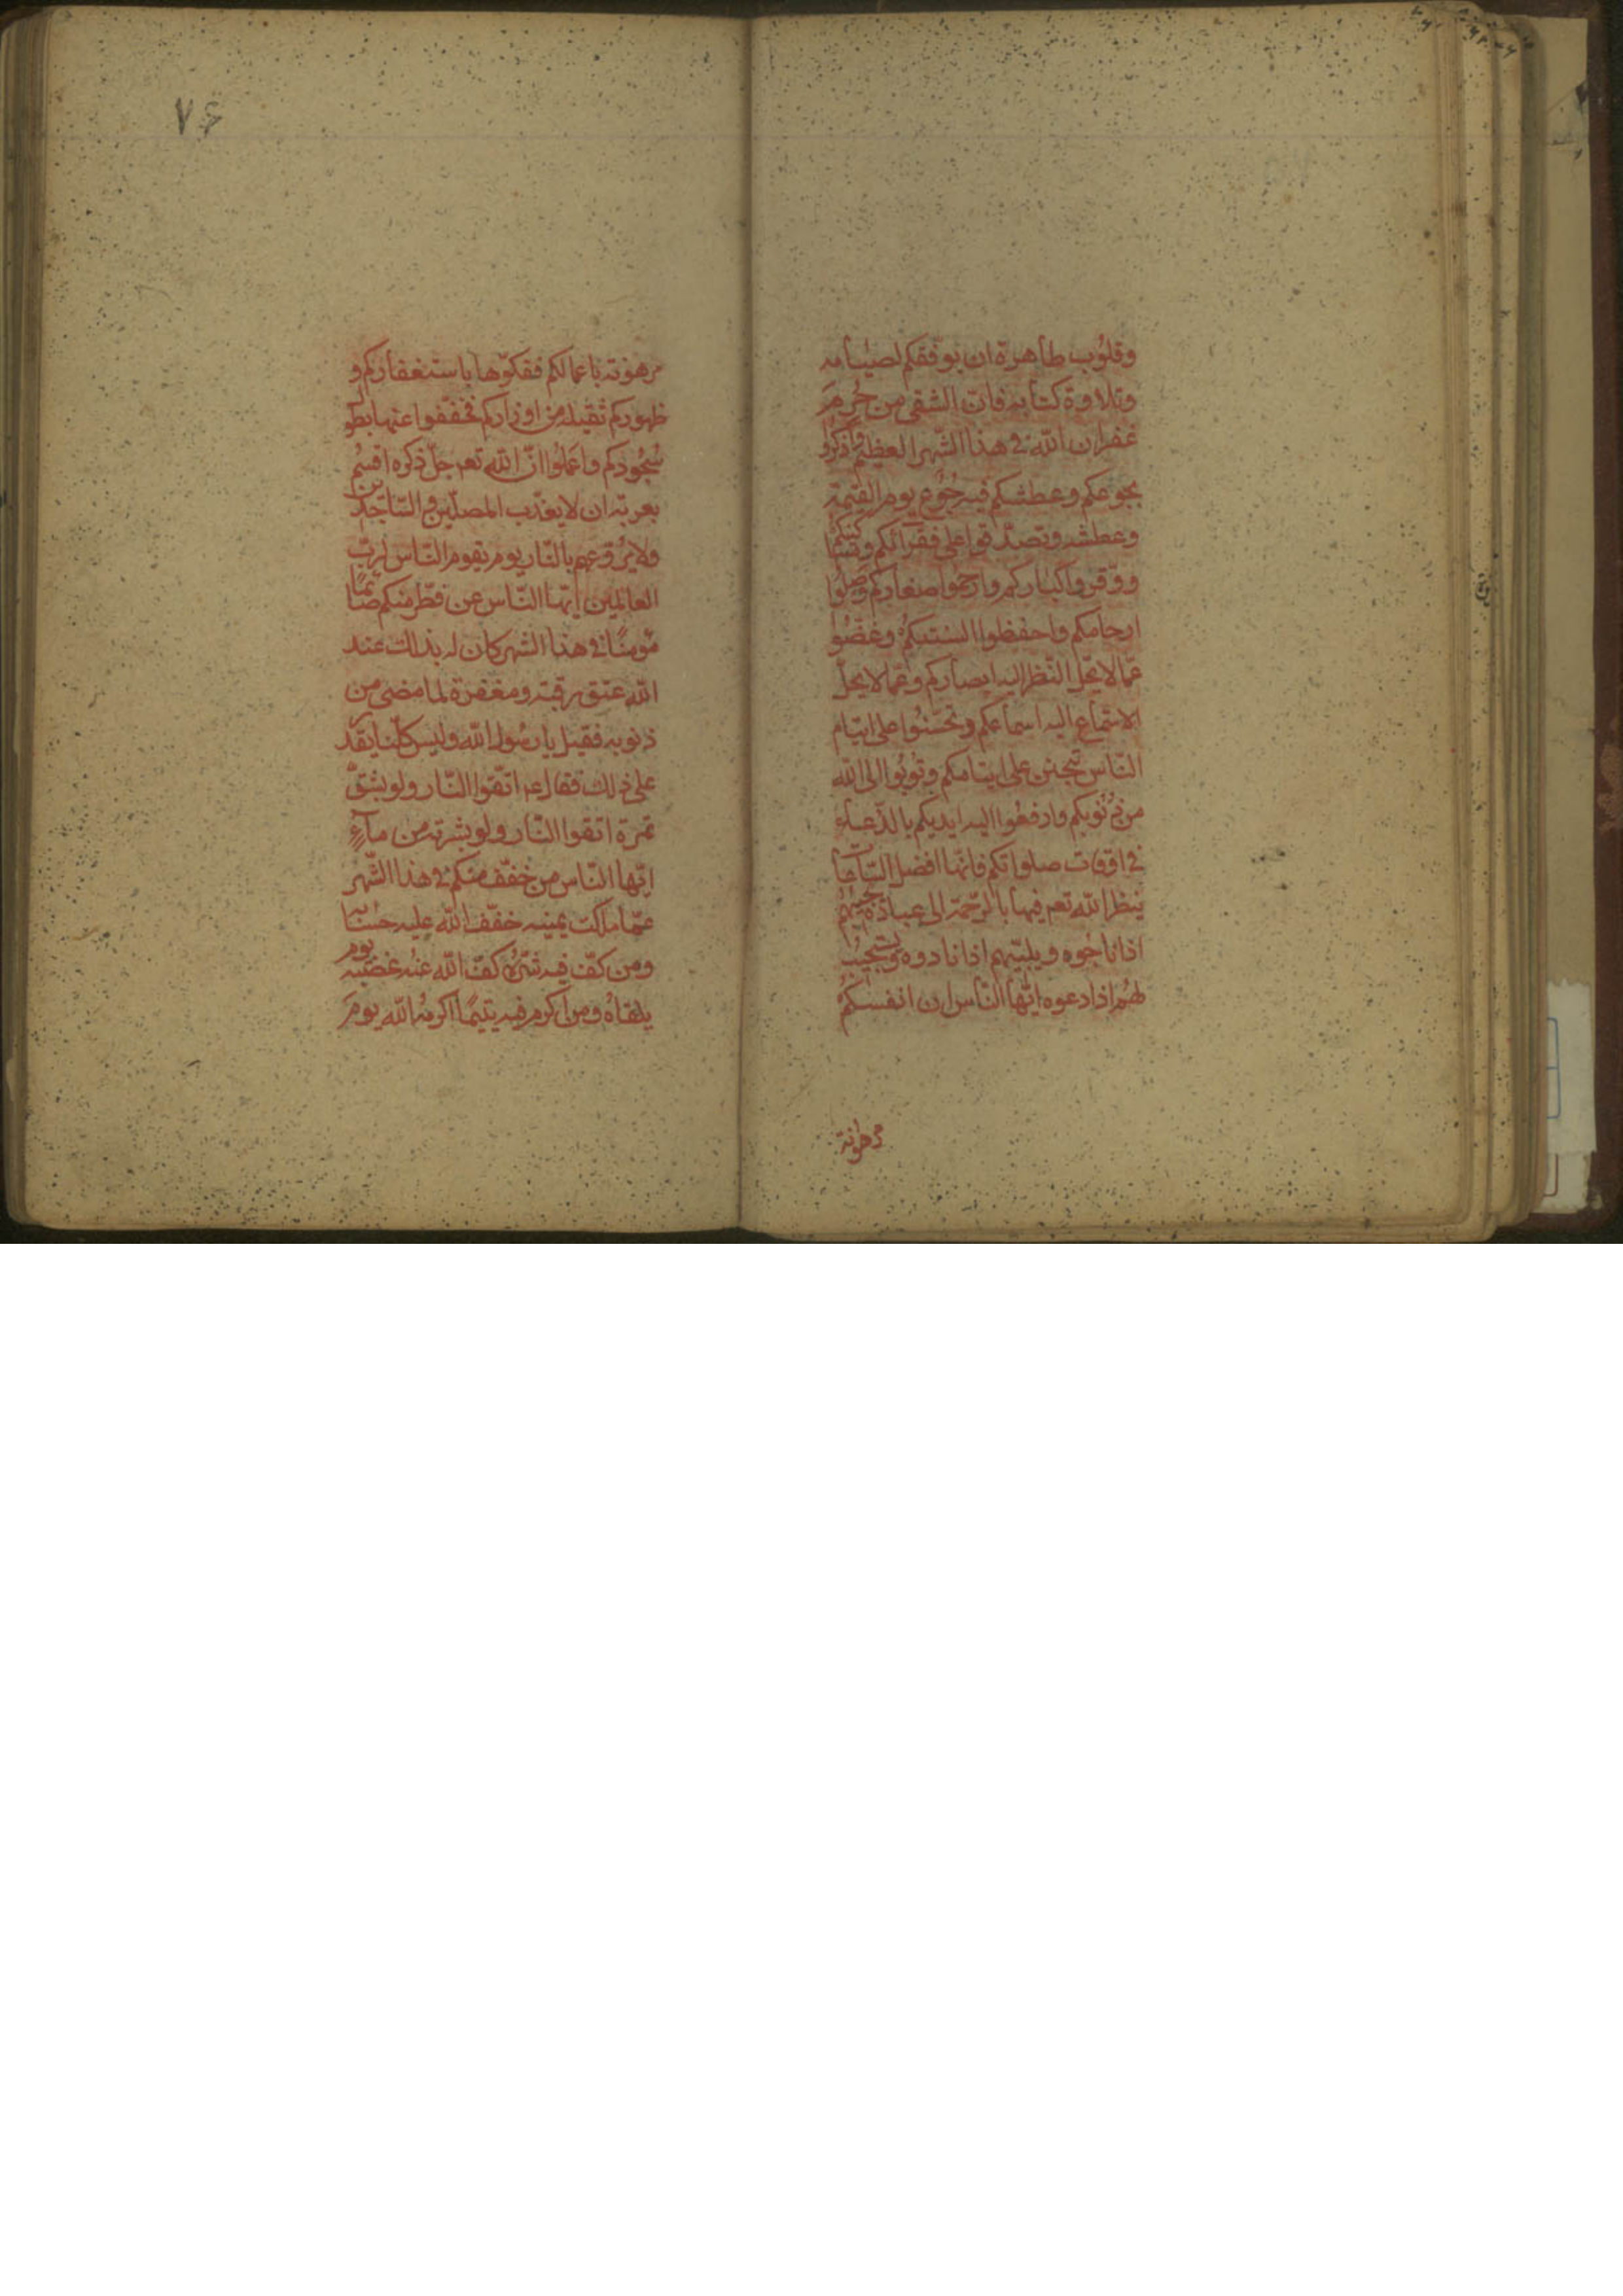 وقلوب طاهرة ان يوفقكم لصيامه
وتلاوة كتابه فانّ الشقى من حُرِمَ
غفران اللّه فى هذا الشّهر العظيم واذكروا
بجوعكم وعطشكم فيه جُوع يوم القيمة
وعطشه وتصدّقوا على فقرائكم ومسٰكينكم
ووقّروا كباركم وارحموا صغاركم وصلُوا
ارحامكم واحفظوا السنتكم وغضّوا
عمّا لا يحلّ النّظر اليه ابصاركم وعمّا لا يحلّ
الاستماع اليه اسماعكم وتحننوا على ايتام
النّاس تحنن على ايتامكم وتوبُوا الى اللّه
من ذُنُوبكم وارفعُوا اليه ايديكم بالدّعاء
فى اوقات صلواتكم فانّها افضل السّاعات
ينظر اللّه تعم فيها بالرّحمة الى عباده يجيبهم
اذا ناجوه ويلبّيهم اذا نادوه ويستجيب
لهُم اذا دعوه ايّها النّاس ان انفسكم
مرهونة
٧۶
مرهونة باعمالكم ففكّوها باستغفاركم و
ظهوركم ثقيلة من اوزاركم فخفّفوا عنها بطول
سُجُودكم واعملُوا انّ اللّه تعم جلّ ذكره اقسم
بعزته ان لا يعذّب المصلّين والسّاجدين
ولا يرُوّعهم بالنّار يوم يقوم النّاس لربّ
العالمين ايّها النّاس من فطّر منكم صائمًا
مؤمنًا فى هذا الشهر كان له بذلك عند
اللّه عتق رقبة ومغفرة لما مضى من
ذنوبه فقيل يا رسُول اللّه وليس كلّنا يقدر
على ذلك فقال عم اتّقوا النّار ولو بشقّ
تمرة اتقوا النّار ولو بشربة من ماءٍ
ايّها النّاس من خفّف منكم فى هذا الشّهر
عمّا ملكت يمينه خفّف اللّه عليه حسابه
ومن كفّ فيه شرّه كفّ اللّه عنه غضبه يوم
يلقاهُ ومن اكرم فيه يتيمًا اكرمهُ اللّه يومَ